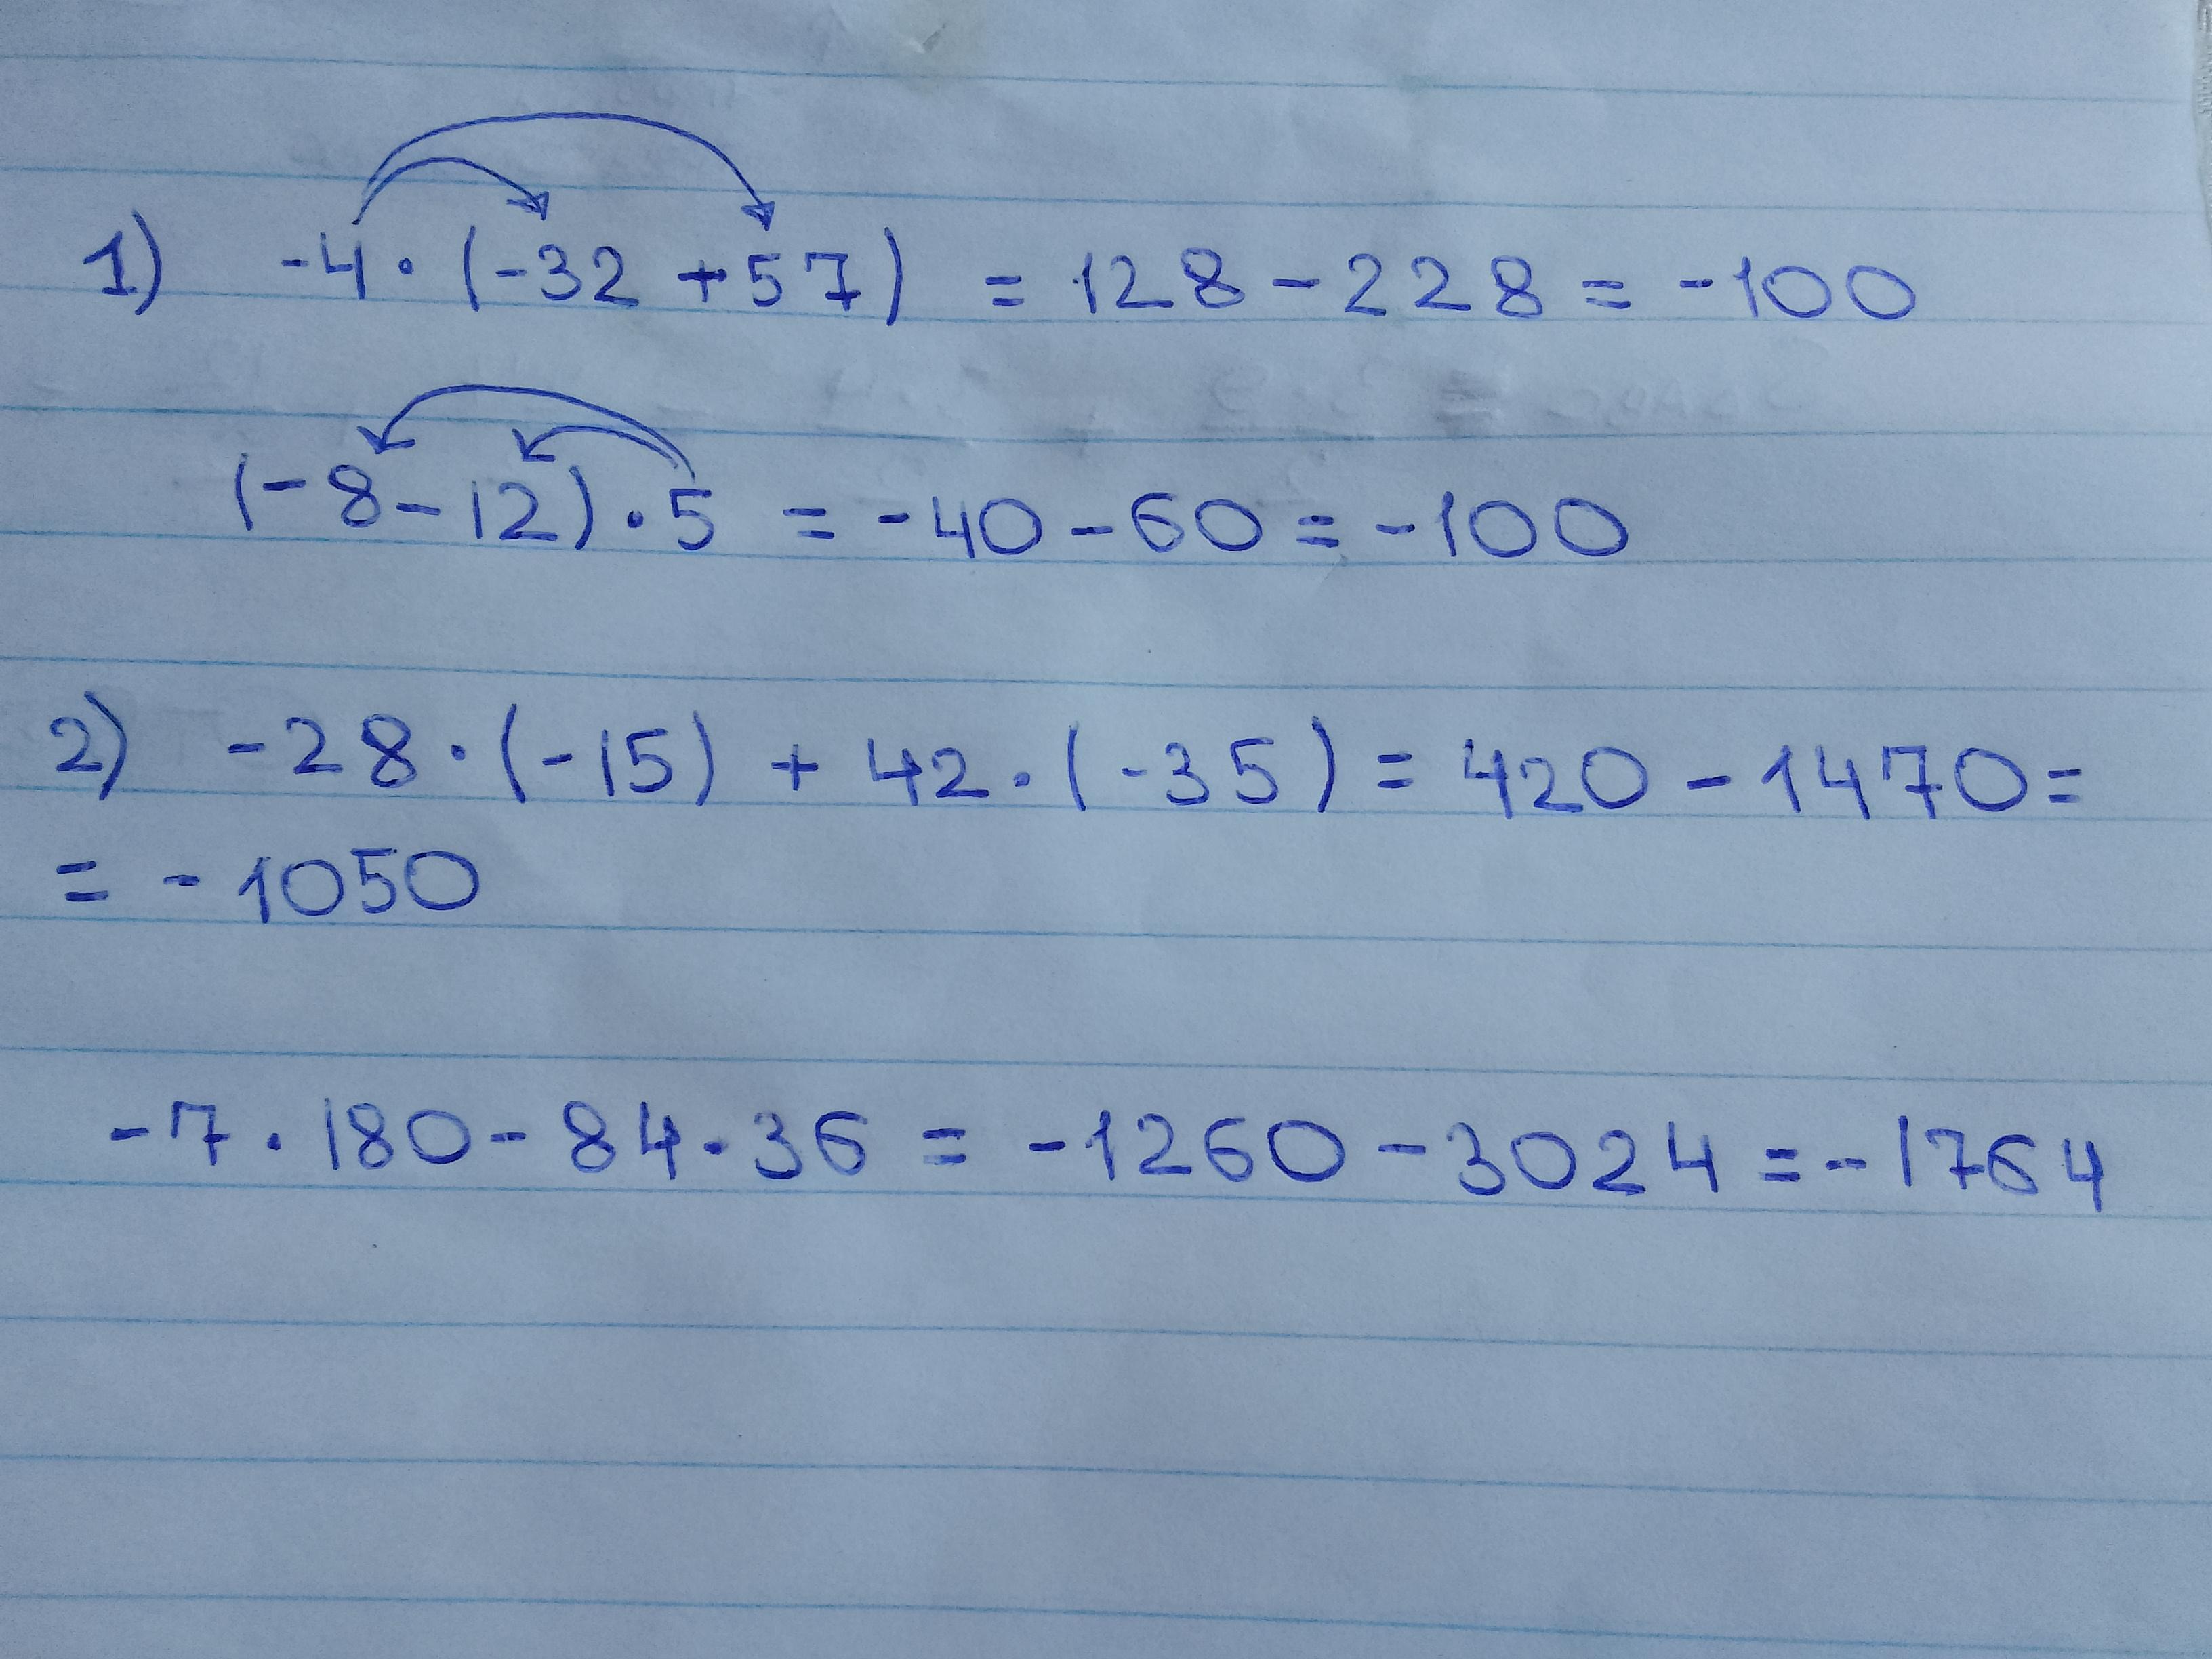 1) -4·(-32+57) = 128-228 = -100
(-8-12)·5 = -40-60 = -100
2) -28·(-15) + 42·(-35) = 420-1470 =
= -1050
-7·180-84·36 = -1260-3024 = -1764